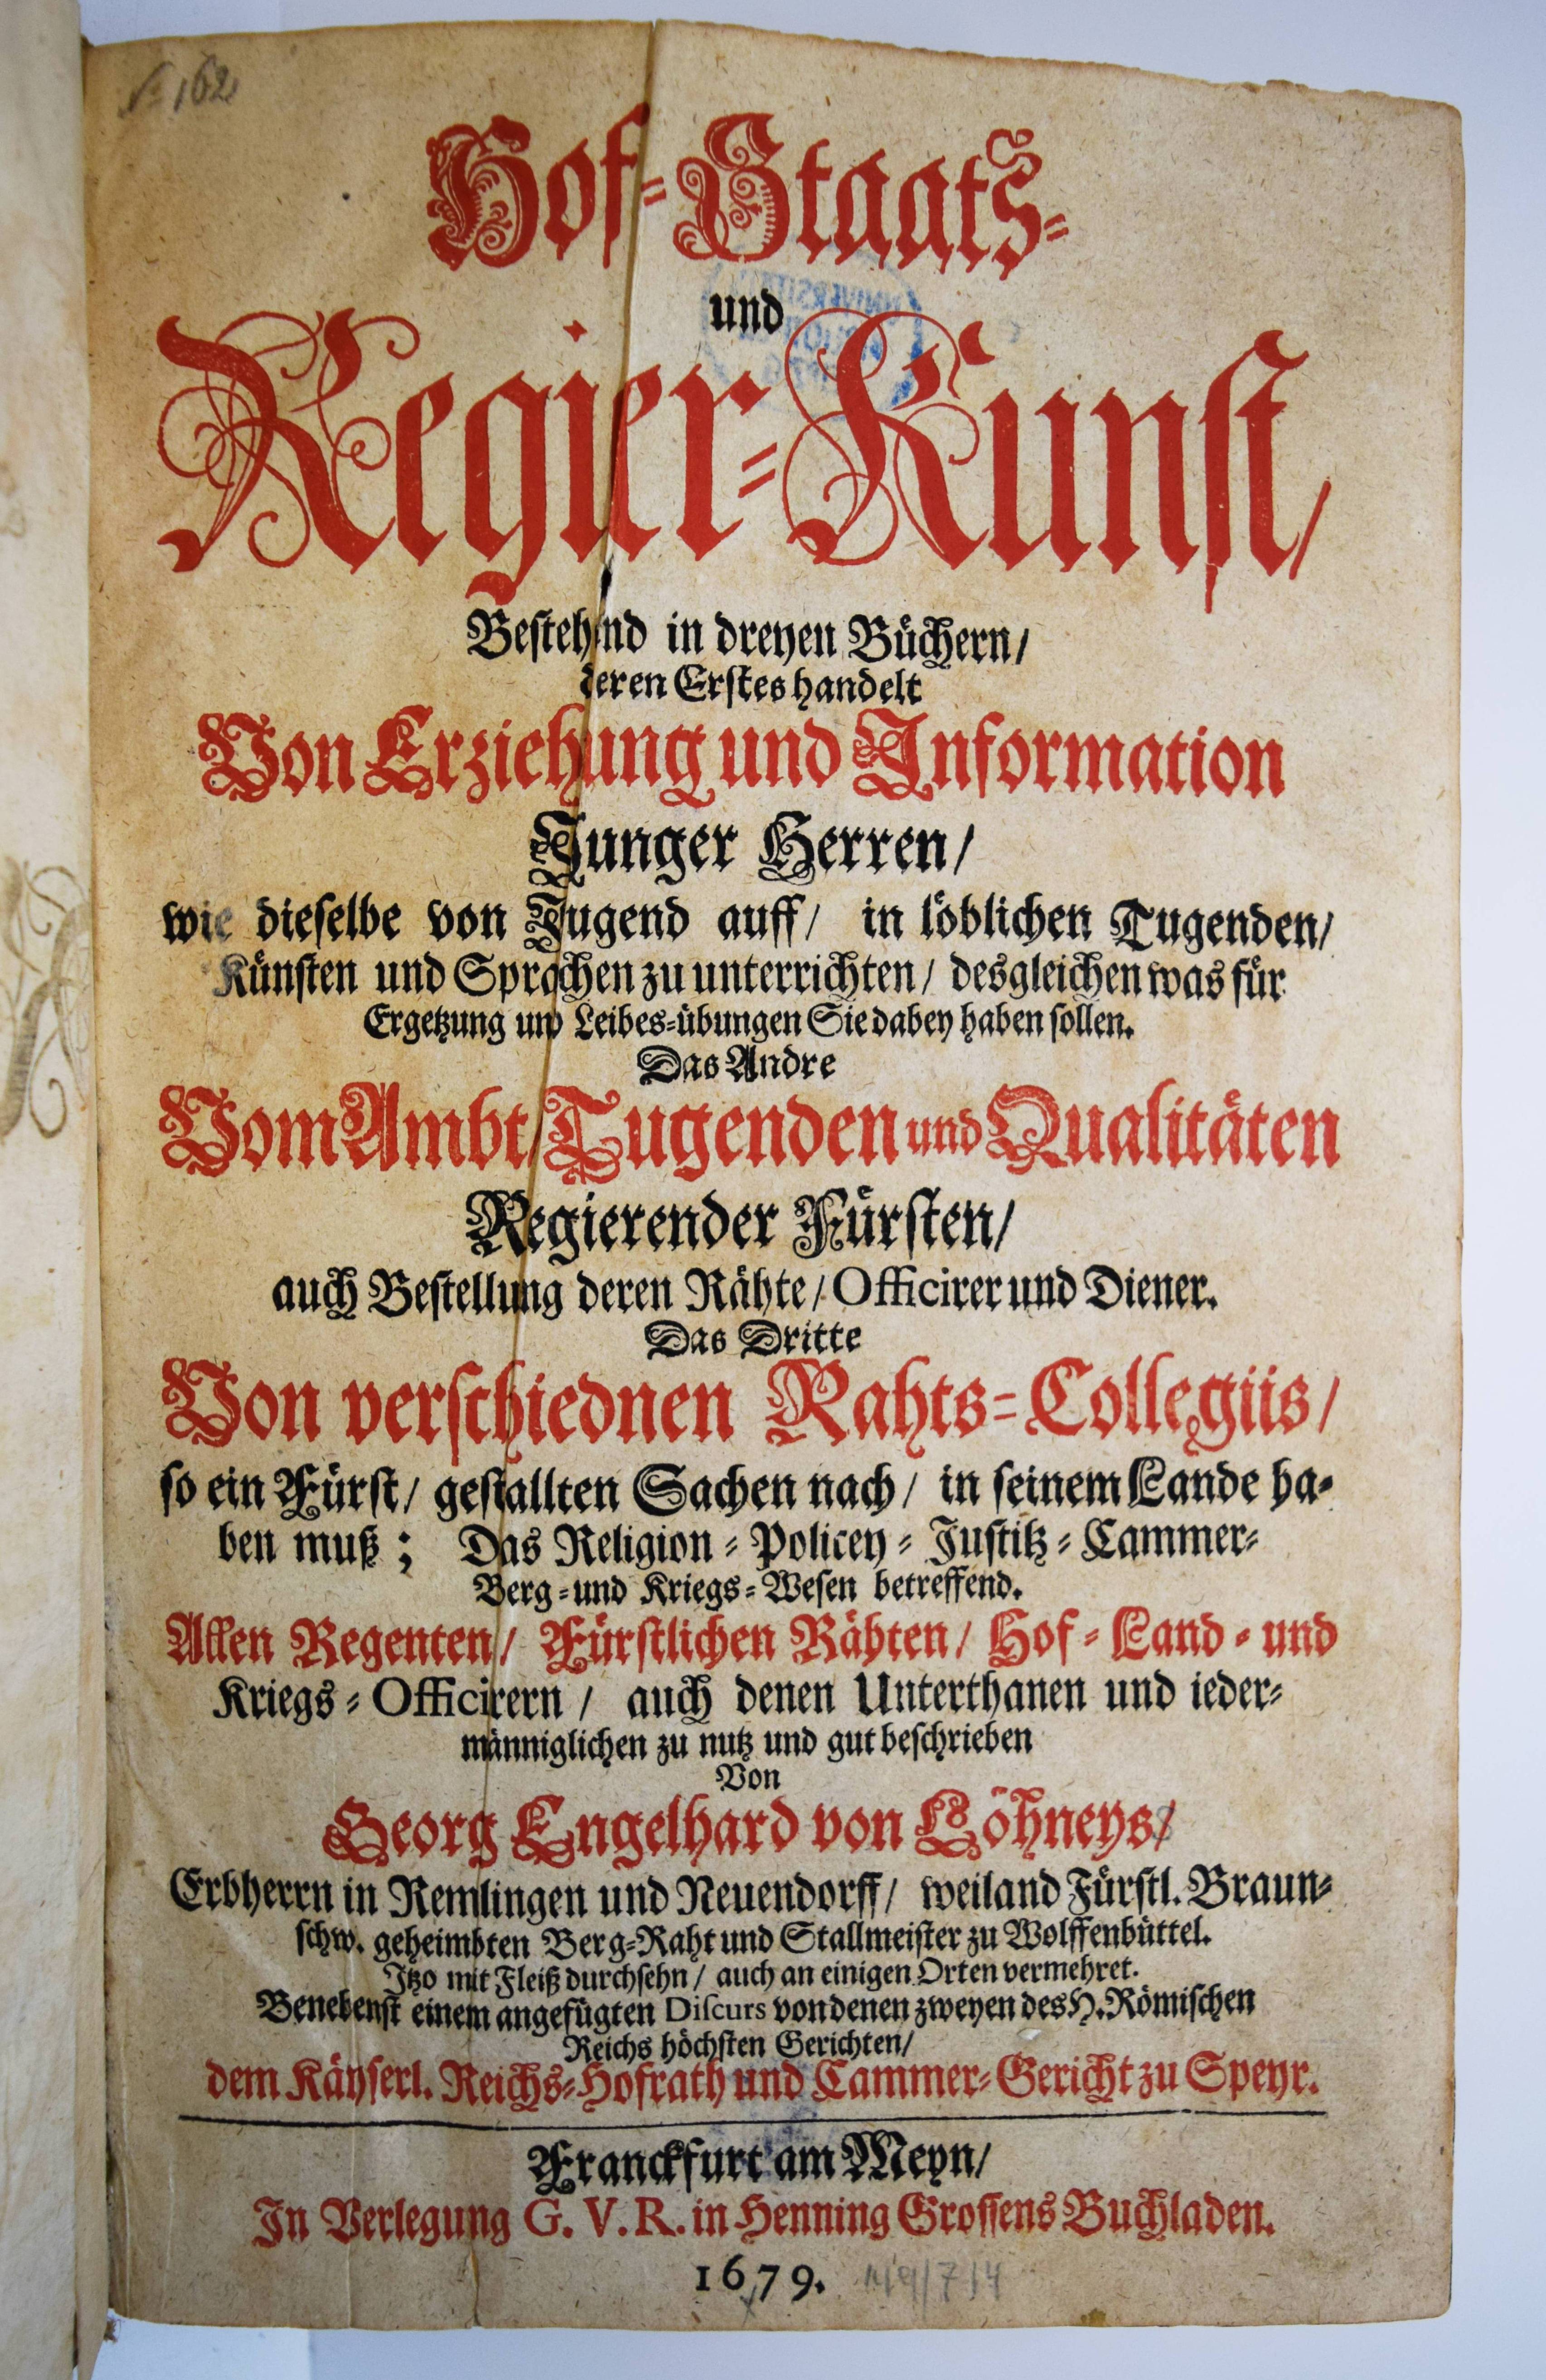 No 162
Hof-Staats-
und
Regier-Kunst/
Bestehend in dreyen Büchern/
deren Erstes handelt
Von Erziehung und Information
Junger Herren/
wie dieselbe von Jugend auff/ in löblichen Tugenden/
Künsten und Sprachen zu unterrichten/ desgleichen was für
Ergetzung und Leibes-übungen Sie dabey haben sollen.
Das Andre
Vom Ambt/ Tugenden und Qualitäten
Regierender Fürsten/
auch Bestellung deren Rähte/ Officirer und Diener.
Das Dritte
Von verschiednen Rahts-Collegiis/
so ein Fürst/ gestallten Sachen nach/ in seinem Lande ha-
ben muß; Das Religion-Policey-Justitz-Cammer-
Berg-und Kriegs-Wesen betreffend.
Allen Regenten/ Fürstlichen Rähten/ Hof-Land-und
Kriegs-Officirern/ auch denen Unterthanen und ieder-
männiglichen zu nutz und gut beschrieben
Von
Georg Engelhard von Löhneys/
Erbherrn in Remlingen und Neuendorff/ weiland Fürstl. Braun-
schw. geheimbten Berg-Raht und Stallmeister zu Wolffenbüttel.
Itzo mit Fleiß durchsehn/ auch an einigen Orten vermehret.
Benebenst einem angefügten Discurs von denen zweyen des H. Römischen
Reichs höchsten Gerichten/
dem Käyserl. Reichs-Hofrath und Cammer-Gericht zu Speyr.
Franckfurt am Meyn/
In Verlegung G. V. R. in Henning Grossens Buchladen.
1679.